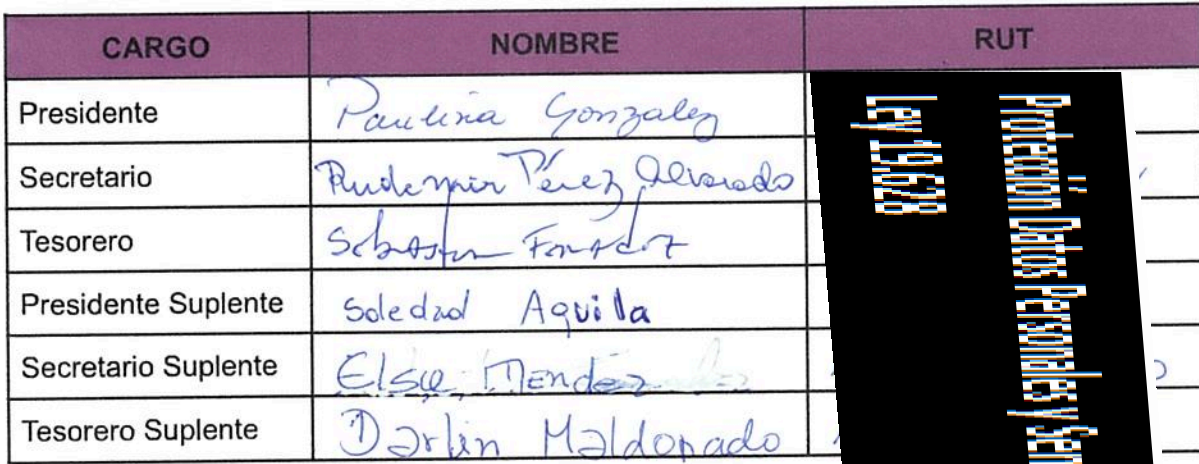 CARGO NOMBRE RUT
Presidente Paulina Gonzalez
Secretario Pérez Alvarado
Tesorero
Presidente Suplente Soledad Aguila
Secretario Suplente Elsie Mendez
Tesorero Suplente Darlin Maldonado
Protección Datos Personales y Se
Ley 19.628